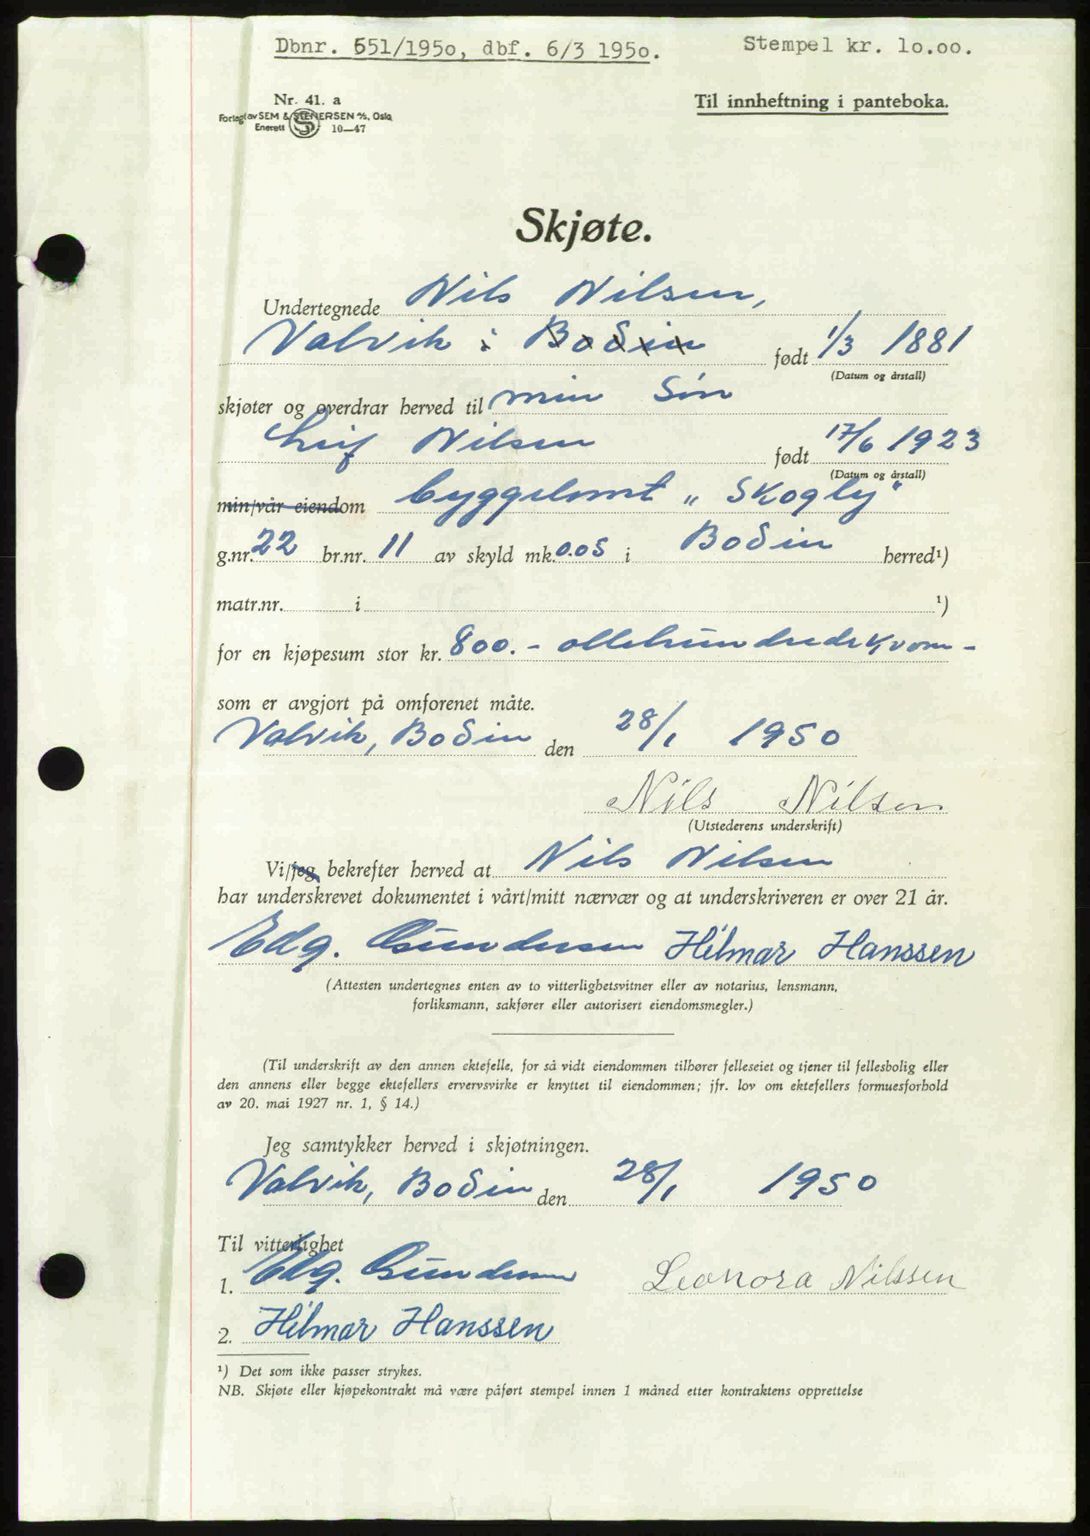 Dbnr. 551/1950, dbf. 6/3 1950.
Stempel kr. 10.00.
Nr. 41. a
Forlag av SEM & STENERSEN A/S, Oslo
Enerett S 10—47
Til innheftning i panteboka.
Skjøte.
Undertegnede Nils Nilsen,
Valvik i Bodin født 1/3 1881
(Datum og årstall)
skjøter og overdrar herved til min Sön
Leif Nilsen født 17/6 1923
(Datum og årstall)
min/vår eiendom byggelomt „ Skogly "
g.nr. 22 br.nr. 11 av skyld mk. 0.05 i Bodin herred¹)
matr.nr. i ¹)
for en kjøpesum stor kr. 800.- ottehundredekroner-
som er avgjort på omforenet måte.
Valvik, Bodin den 28/1 1950
Nils Nilsen
(Utstederens underskrift)
Vi/jeg bekrefter herved at Nils Nilsen
har underskrevet dokumentet i vårt/mitt nærvær og at underskriveren er over 21 år.
Edg. Gundersen Hilmar Hanssen
(Attesten undertegnes enten av to vitterlighetsvitner eller av notarius, lensmann,
forliksmann, sakfører eller autorisert eiendomsmegler.)
(Til underskrift av den annen ektefelle, for så vidt eiendommen tilhører felleseiet og tjener til fellesbolig eller
den annens eller begge ektefellers ervervsvirke er knyttet til eiendommen; jfr. lov om ektefellers formuesforhold
av 20. mai 1927 nr. 1, § 14.)
Jeg samtykker herved i skjøtningen.
Valvik, Bodin den 28/1 1950
Til vitterlighet
1. Edg. Gundersen
Leonora Nilssen
2. Hilmar Hanssen
¹) Det som ikke passer strykes.
NB. Skjøte eller kjøpekontrakt må være påført stempel innen 1 måned etter kontraktens opprettelse